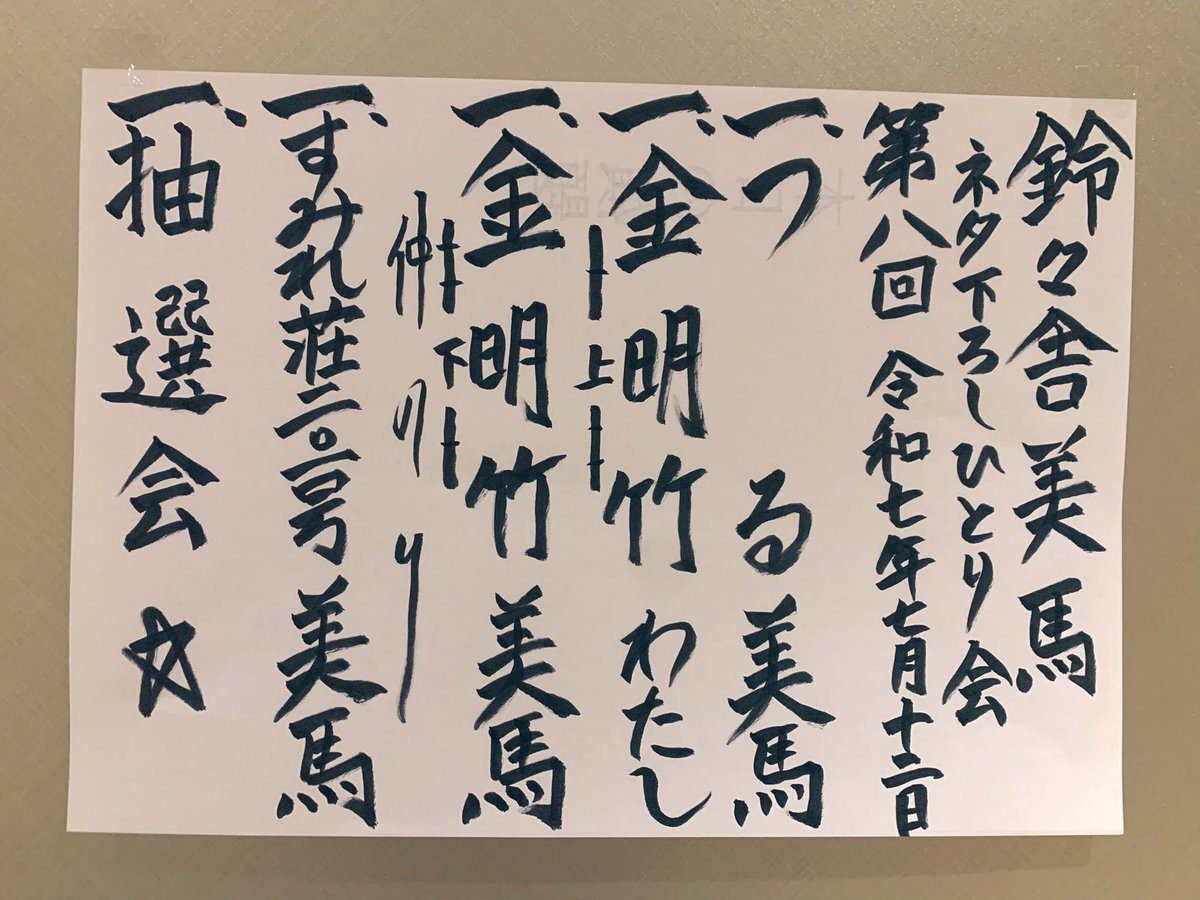 鈴々舎美馬
ネタ下ろしひとり会
第八回 令和七年七月十二日
一、つる 美馬
一、金明竹 ー上ー わたし
一、金明竹 ー下ー 美馬
仲入り
一、すみれ荘二〇一号 美馬
一、抽選会☆